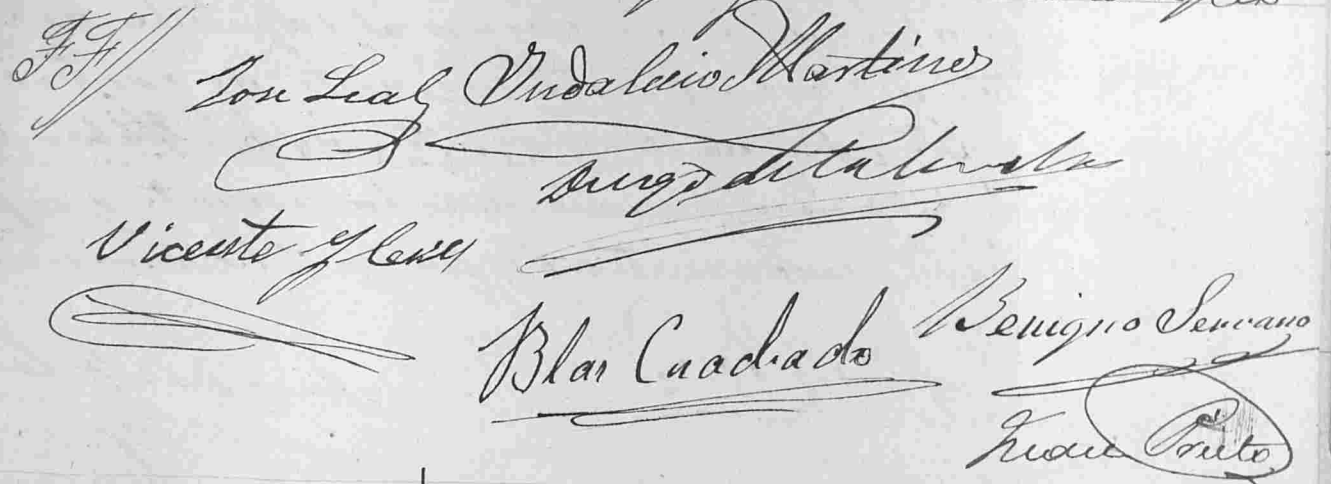 FF
Jose Leal Yndalecio Martinez
Diego de
Vicente
Blas Cuadrado Benigno Serrano
Juan Prieto